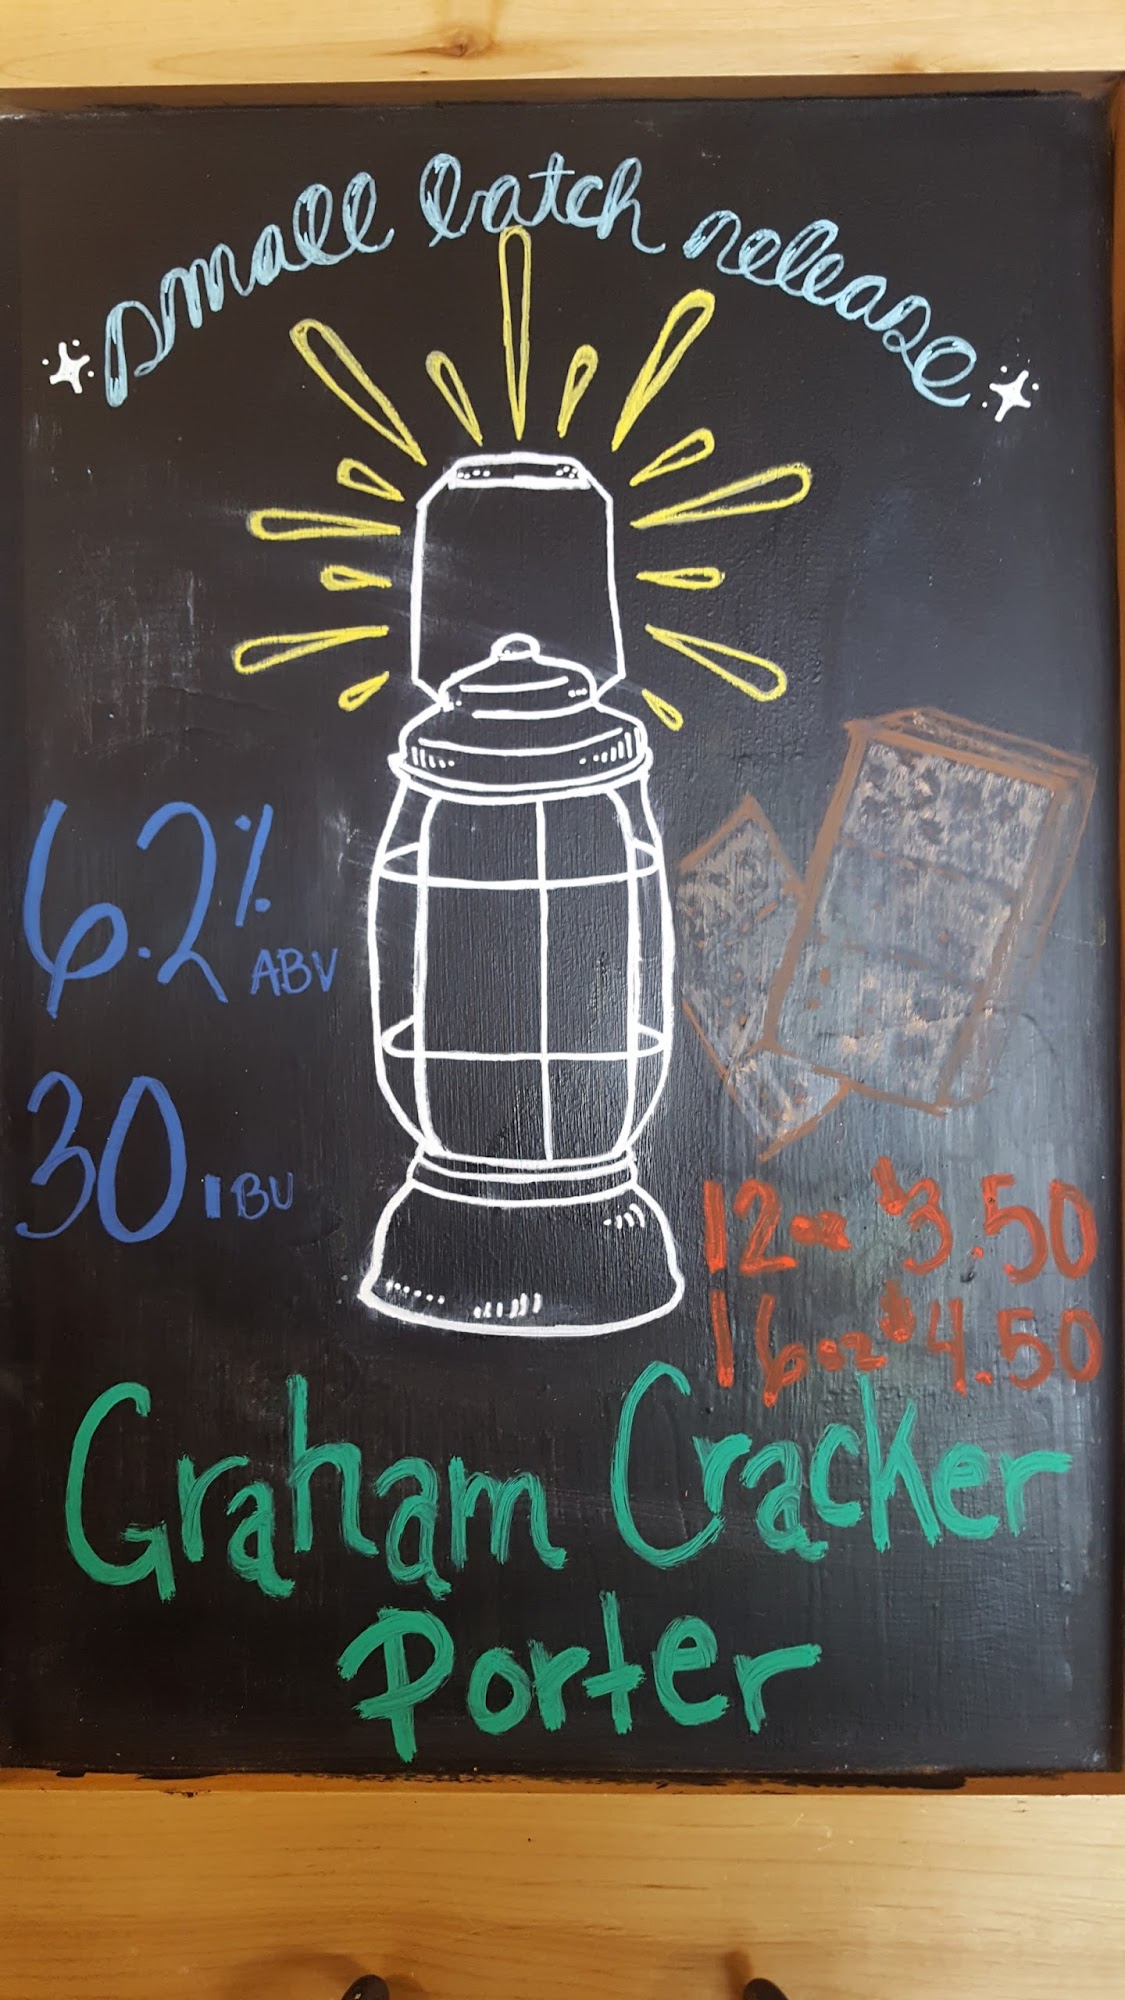 small batch release
6.2% ABV
30 IBU
12oz $3.50
16oz $4.50
Graham Cracker
Porter